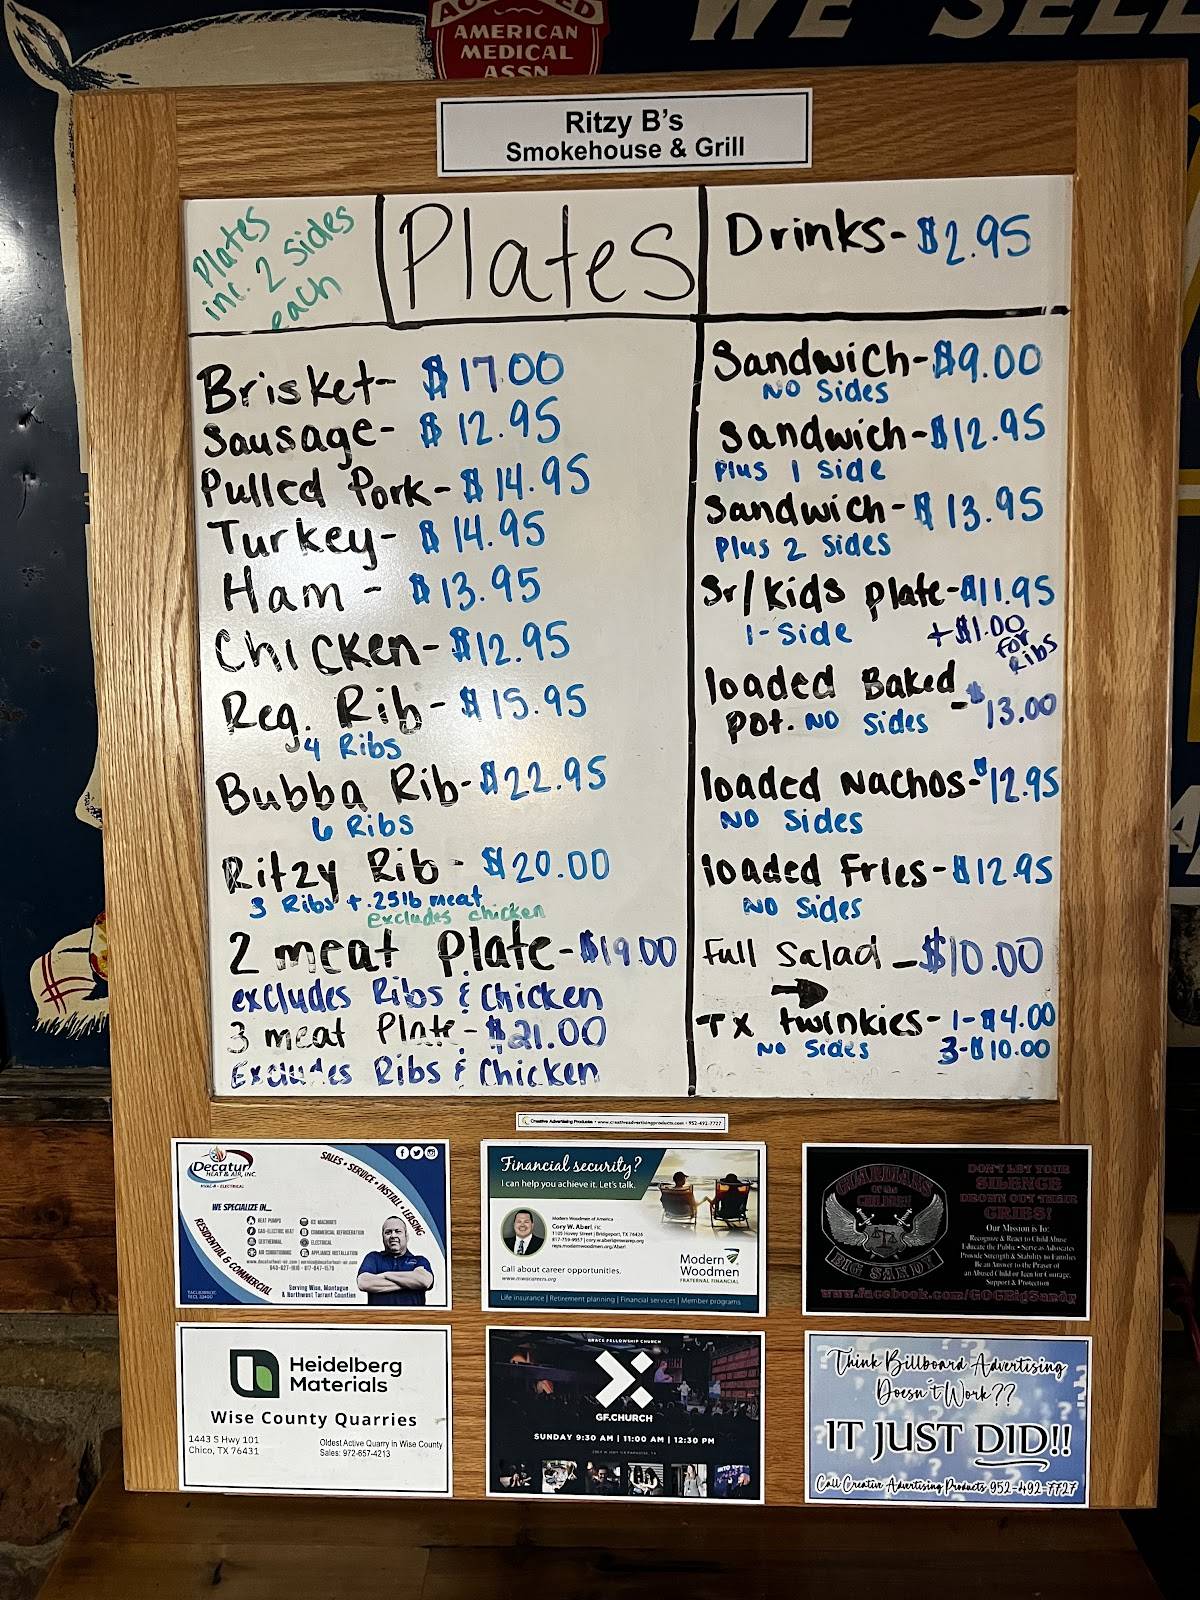 ACCEPTED
AMERICAN
MEDICAL
ASSN
WE SELL
Ritzy B's
Smokehouse & Grill
Plates
inc. 2 sides
each
Plates
Drinks- $2.95
Brisket- $17.00
Sausage- $12.95
Pulled Pork- $14.95
Turkey- $14.95
Ham - $13.95
Chicken- $12.95
Reg. Rib- $15.95
4 Ribs
Bubba Rib- $22.95
6 Ribs
Ritzy Rib- $20.00
3 Ribs + .25lb meat
excludes chicken
2 meat plate- $19.00
excludes Ribs & Chicken
3 meat Plate- $21.00
Excludes Ribs & Chicken
Sandwich- $9.00
NO Sides
Sandwich- $12.95
Plus 1 side
Sandwich- $13.95
plus 2 sides
Sr/Kids plate- $11.95
1-side +$1.00
for
Ribs
loaded Baked
pot. NO sides - $13.00
loaded Nachos- $12.95
NO Sides
loaded Fries- $12.95
NO Sides
Full Salad - $10.00
TX twinkies- 1-$4.00
NO Sides 3-$10.00
Creative Advertising Products • www.creativeadvertisingproducts.com • 952-492-7727
Decatur
HEAT & AIR, INC.
HVAC-R - ELECTRICAL
SALES • SERVICE • INSTALL • LEASING
WE SPECIALIZE IN...
HEAT PUMPS
GAS-ELECTRIC HEAT
GEOTHERMAL
AIR CONDITIONING
ICE MACHINES
COMMERCIAL REFRIGERATION
ELECTRICAL
APPLIANCE INSTALLATION
RESIDENTIAL & COMMERCIAL
Serving Wise, Montague
& Northwest Tarrant Counties
Financial security?
I can help you achieve it. Let's talk.
Modern Woodmen of America
Cory W. Aberl, FIC
1105 Hovey Street | Bridgeport, TX 76426
Modern
Woodmen
FRATERNAL FINANCIAL
Call about career opportunities.
www.mwacareers.org
Life insurance | Retirement planning | Financial services | Member programs
GUARDIANS
OF THE
CHILDREN
BIG SANDY
DON'T LET YOUR
SILENCE
DROWN OUT THEIR
CRIES!
Our Mission is To:
Recognize & React to Child Abuse
Educate the Public • Serve as Advocates
Provide Strength & Stability to Families
Be an Answer to the Prayer of
an Abused Child or Teen for Courage,
Support & Protection
www.facebook.com/GOCBigSandy
Heidelberg
Materials
Wise County Quarries
1443 S Hwy 101
Chico, TX 76431
Oldest Active Quarry in Wise County
Sales: 972-657-4213
GRACE FELLOWSHIP CHURCH
GF.CHURCH
SUNDAY 9:30 AM | 11:00 AM | 12:30 PM
Think Billboard Advertising
Doesn't Work??
IT JUST DID!!
Call Creative Advertising Products 952-492-7727